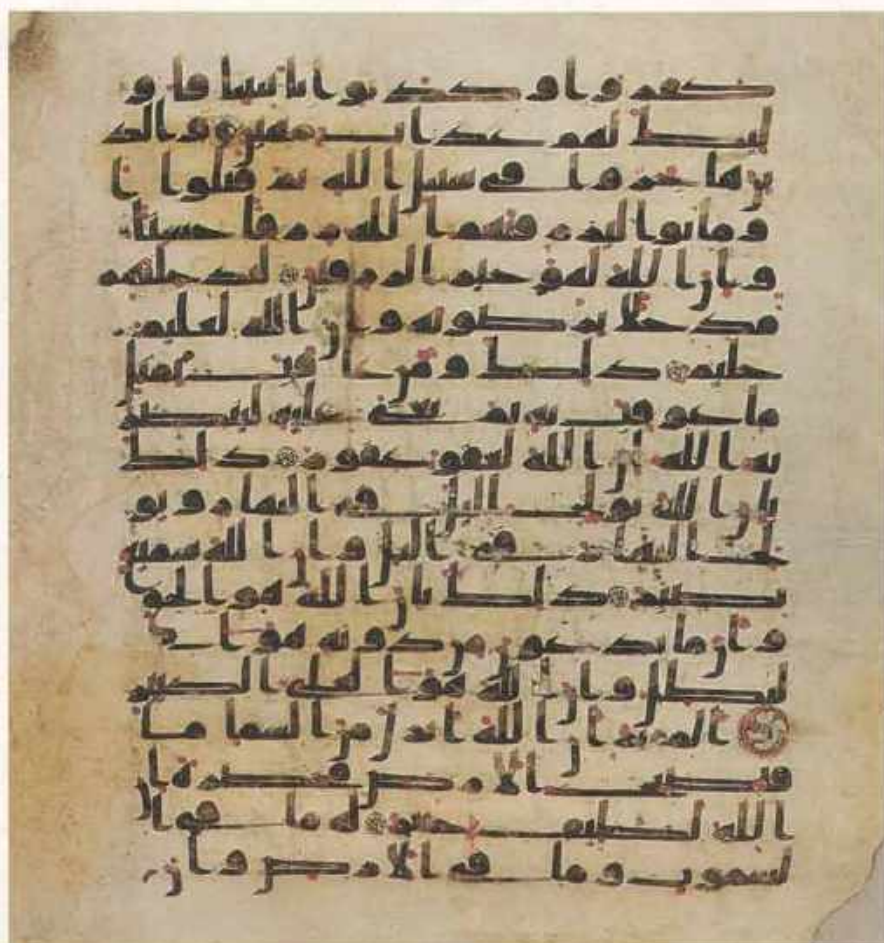 كفروا وكذبوا بايتنا فاو
لئك لهم عذاب مهين والذ
ين هاجروا في سبيل الله ثم قتلوا ا
و ماتوا ليرزقنهم الله رزقا حسنا
وان الله لهو خير الرزقين ليدخلنهم
مدخلا يرضونه وان الله لعليم
حليم ذلك ومن عاقب بمثل
ما عوقب به ثم بغي عليه لينصرنه
الله ان الله لعفو غفور ذلك
بان الله يولج اليل في النهار ويو
لج النهار في اليل وان الله سميع
بصير ذلك بان الله هو الحق
وان ما يدعون من دونه هو ا
لبطل وان الله هو العلي الكبير
الم تر ان الله انزل من السما ما
فتصبح الارض مخضرة ان
الله لطيف خبير له ما في ا
لسموت وما في الارض وان